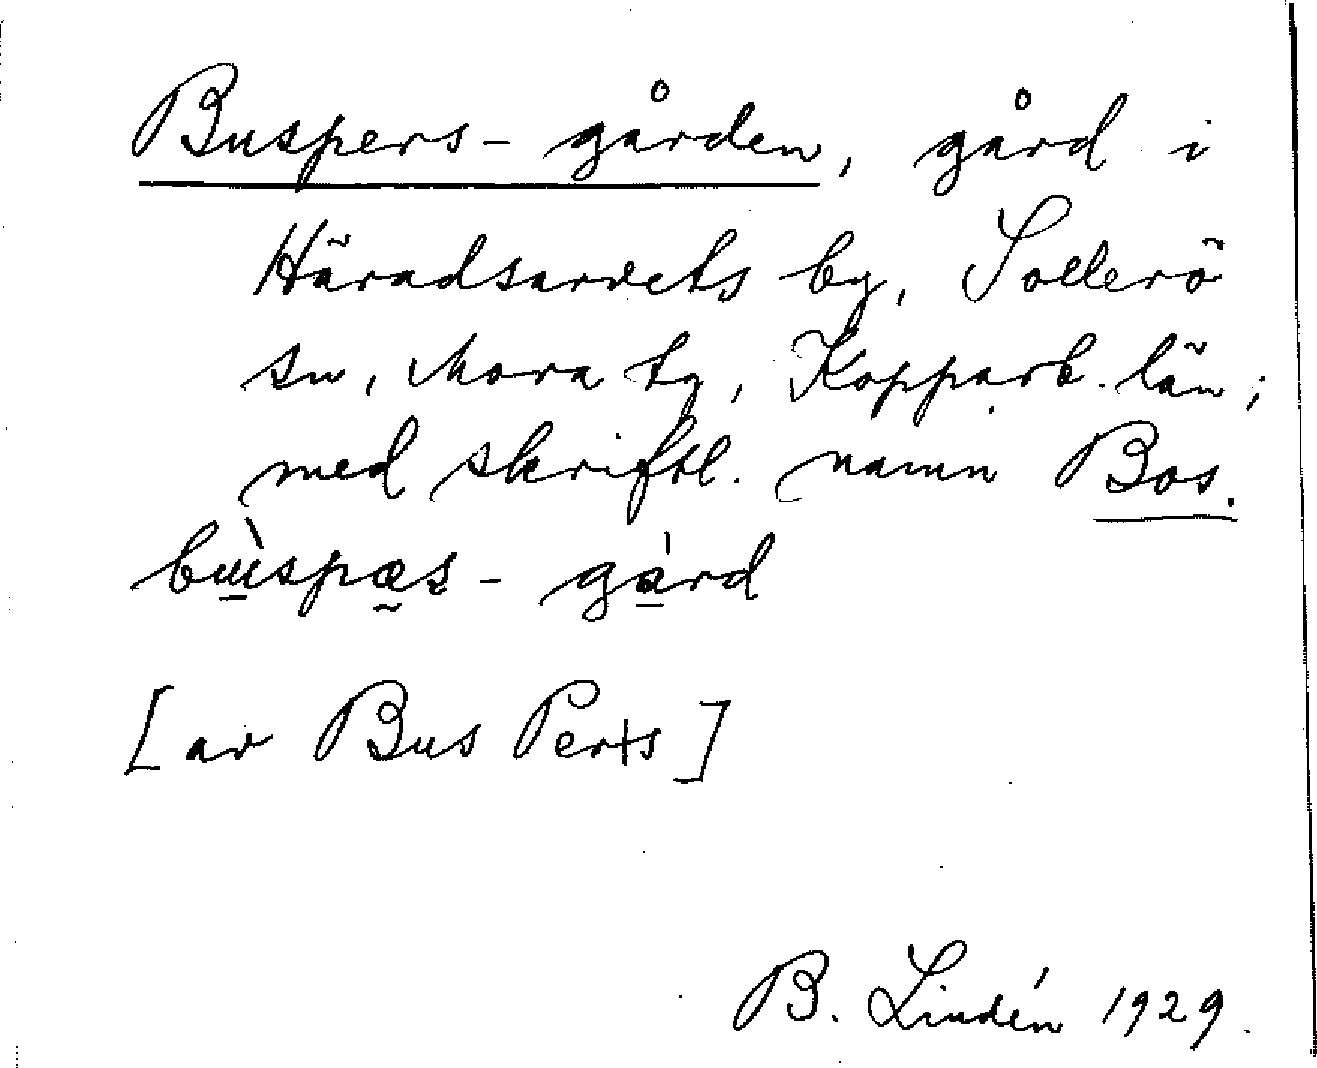 Buspers-gården, gård i
Häradsarvets by, Sollerö
sn, Mora tg, Kopparb. län;
med skriftl. namn Bos.
bɯ̀spæs-gárd
[av Bus Perss]
B. Lindén 1929.